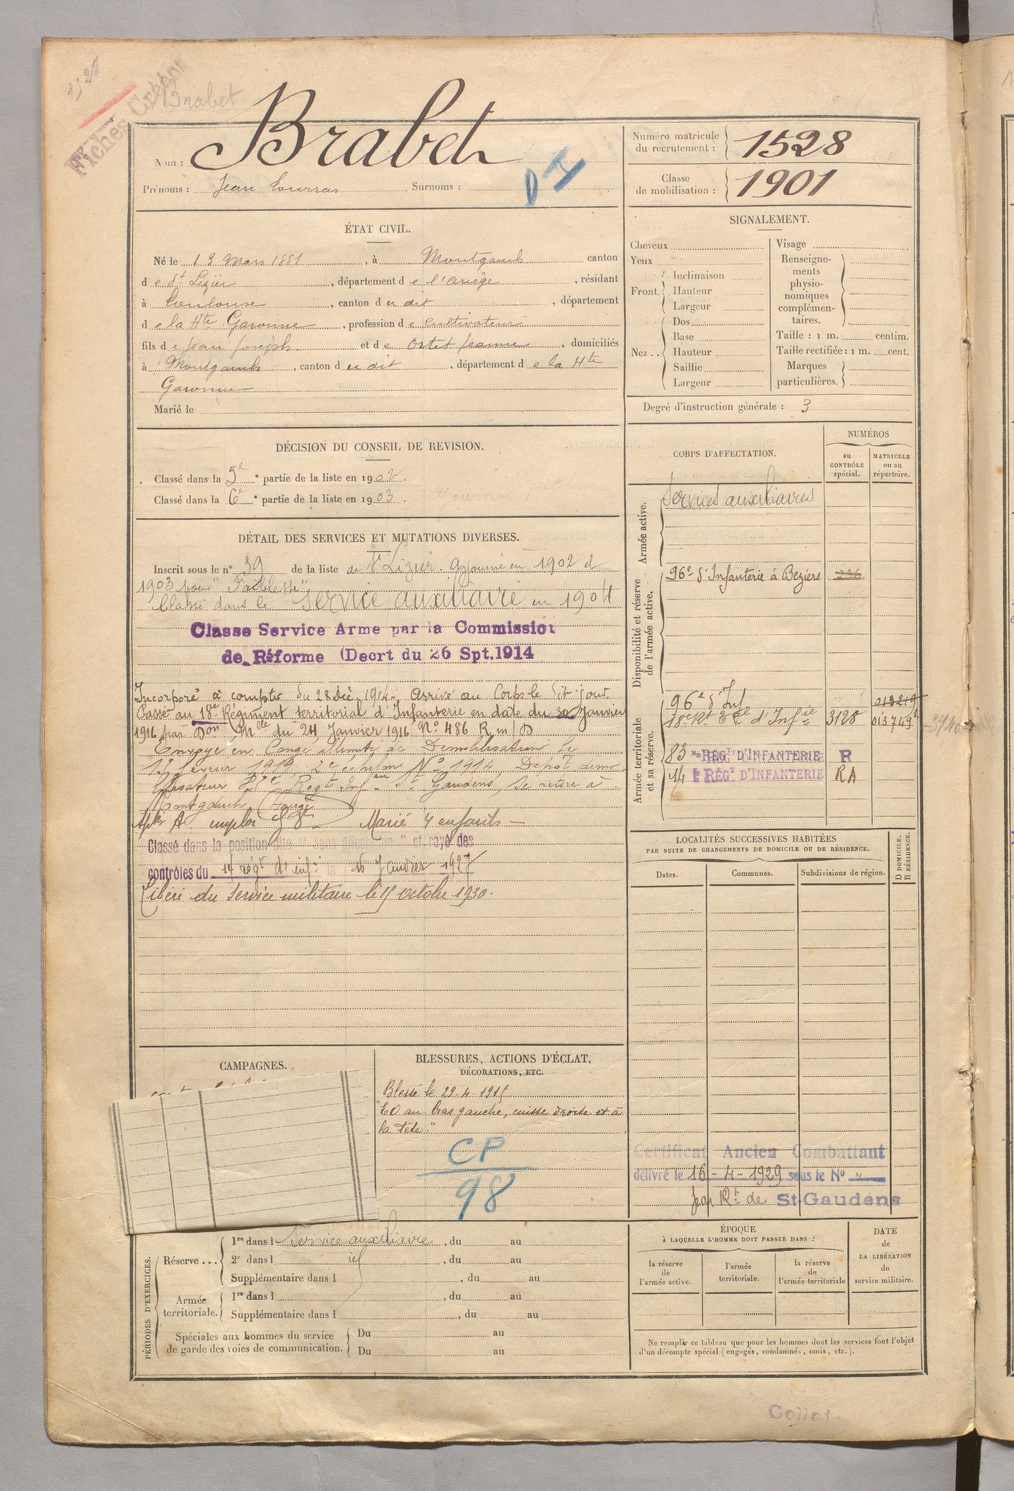 Fiches
Brabet
Nom : Brabet
Prénoms : Jean Surnoms :
Numéro matricule du recrutement : 1528
Classe de mobilisation : 1901
ÉTAT CIVIL.
Né le 13 Mars 1881, à Montgauch canton
de St Lizier, département de l'Ariège, résidant
à Toulouse, canton du dit, département
de la Hte Garonne, profession de Cultivateur
fils de Jean Joseph et de Ortet Jeanne, domiciliés
à Montgauch, canton du dit, département de la Hte
Garonne
Marié le
SIGNALEMENT.
Cheveux
Yeux
Front Inclinaison
Hauteur
Largeur
Nez .. Dos
Base
Hauteur
Saillie
Largeur
Visage
Renseigne-
ments
physio-
nomiques
complémen-
taires.
Taille : 1 m. centim.
Taille rectifiée : 1 m. cent.
Marques
particulières.
Degré d'instruction générale : 3
DÉCISION DU CONSEIL DE REVISION.
Classé dans la 5e partie de la liste en 1902.
Classé dans la 6e partie de la liste en 1903.
DÉTAIL DES SERVICES ET MUTATIONS DIVERSES.
Inscrit sous le n° 39 de la liste de St Lizier. Ajourné en 1902 et
1903 pour "Faiblesse"
Classé dans le Service auxiliaire en 1904
Classe Service Arme par la Commission
de Réforme (Decrt du 26 Spt. 1914
Incorporé à compter du 28 Déc 1914, Arrivé au Corps le dit jour
Passé au 18e Régiment territorial d'Infanterie en date du 30 Janvier
1916 par Don Mlle du 24 Janvier 1916 N° 486 R m/D
Envoyé en Congé illimité de Démobilisation le
17 février 1919 2e échelon N° 1914, Dépôt démo
bilisateur Regt Inf St Gaudens, Se retire à
Montgauch
Marié 4 enfants
Classé dans la position dite et rayé des
contrôles du 14 régt d'inf: le 16 Janvier 1927
Libéré du service militaire le 15 octobre 1930.
CORPS D'AFFECTATION.
NUMÉROS
au CONTRÔLE spécial.
MATRICULE ou au répertoire.
Armée active.
Services auxiliaires
Disponibilité et réserve de l'armée active.
96e d'Infanterie à Beziers 236
Armée territoriale et sa réserve.
96e d'Inf
18e Rt Tal d'Infie 3128 013749
83 e RÉGt D'INFANTERIE R
14 e RÉGt D'INFANTERIE RA
LOCALITÉS SUCCESSIVES HABITÉES
PAR SUITE DE CHANGEMENTS DE DOMICILE OU DE RÉSIDENCE.
Dates. Communes. Subdivisions de région.
D DOMICILE. R RÉSIDENCE.
Certificat Ancien Combattant
délivré le 16-4-1929 sous le N°
par Rt de St-Gaudens
CAMPAGNES.
BLESSURES, ACTIONS D'ÉCLAT,
DÉCORATIONS, ETC.
Blessé le 29-4-1915
"EO au bras gauche, cuisse droite et à
la tête"
CP
98
PÉRIODES D'EXERCICES.
Réserve ... 1re dans l Service auxiliaire, du au
2e dans l id, du au
Supplémentaire dans l , du au
Armée territoriale. 1re dans l , du au
Supplémentaire dans l , du au
Spéciales aux hommes du service
de garde des voies de communication.
Du au
Du au
ÉPOQUE
À LAQUELLE L'HOMME DOIT PASSER DANS :
la réserve de l'armée active.
l'armée territoriale.
la réserve de l'armée territoriale
DATE de LA LIBÉRATION du service militaire.
Ne remplir ce tableau que pour les hommes dont les services font l'objet
d'un décompte spécial (engagés, condamnés, omis, etc.).